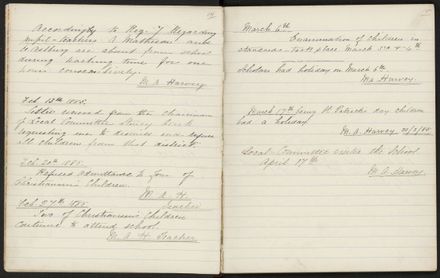 According to Reg: 7 Regarding
pupil-teachers A Matheson and
are absent from school
during teaching time for one
hour consecutively.
M. A. Harvey
Feb. 13th 1885.
Letter received from the chairman
of Local Committee
requesting me to dismiss and refuse
all children from that district.
Feb. 20th 1885.
Refused admittance to four of
Christiansen's Children.
M. A. H.
Teacher
Feb. 27th 1885.
Two of Christiansen's Children
continue to attend school.
M. A. H. Teacher
March 4th
Examination of children in
standards took place March 3rd & 4th
Scholars had holiday on March 5th
Ma Harvey.
March 17th being St Patricks day children
had a holiday.
M. A. Harvey 20/3/85
Local Committee visited the School
April 17th
M. A. Harvey